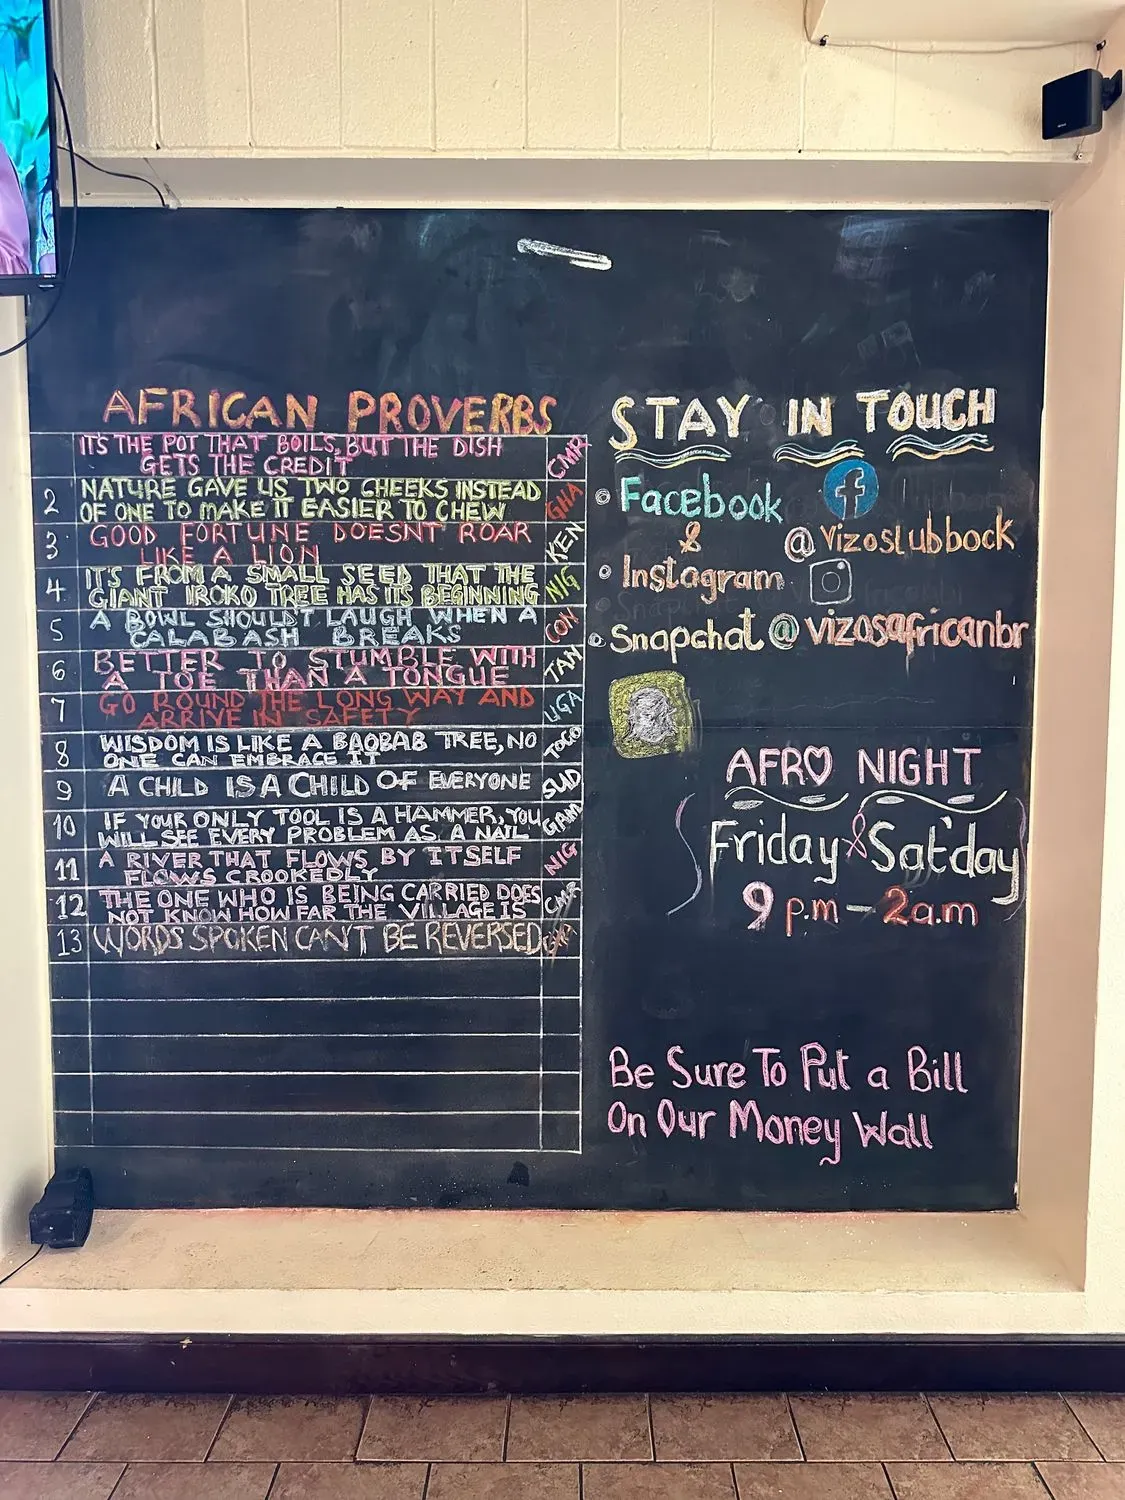 AFRICAN PROVERBS
IT'S THE POT THAT BOILS, BUT THE DISH
GETS THE CREDIT CMR
2 NATURE GAVE US TWO CHEEKS INSTEAD
OF ONE TO MAKE IT EASIER TO CHEW GHA
3 GOOD FORTUNE DOESNT ROAR
LIKE A LION KEN
4 IT'S FROM A SMALL SEED THAT THE
GIANT IROKO TREE HAS ITS BEGINNING NIG
5 A BOWL SHOULDT LAUGH WHEN A
CALABASH BREAKS CON
6 BETTER TO STUMBLE WITH
A TOE THAN A TONGUE TAN
7 GO ROUND THE LONG WAY AND
ARRIVE IN SAFETY UGA
8 WISDOM IS LIKE A BAOBAB TREE, NO
ONE CAN EMBRACE IT TOGO
9 A CHILD IS A CHILD OF EVERYONE SUD
10 IF YOUR ONLY TOOL IS A HAMMER, YOU
WILL SEE EVERY PROBLEM AS A NAIL GAM
11 A RIVER THAT FLOWS BY ITSELF
FLOWS CROOKEDLY NIG
12 THE ONE WHO IS BEING CARRIED DOES
NOT KNOW HOW FAR THE VILLAGE IS CMR
13 WORDS SPOKEN CAN'T BE REVERSED
STAY IN TOUCH
Facebook f
& @vizoslubbock
Instagram
Snapchat @vizosafricanbr
AFRO NIGHT
Friday & Sat'day
9 p.m - 2a.m
Be Sure To Put a Bill
On Our Money Wall